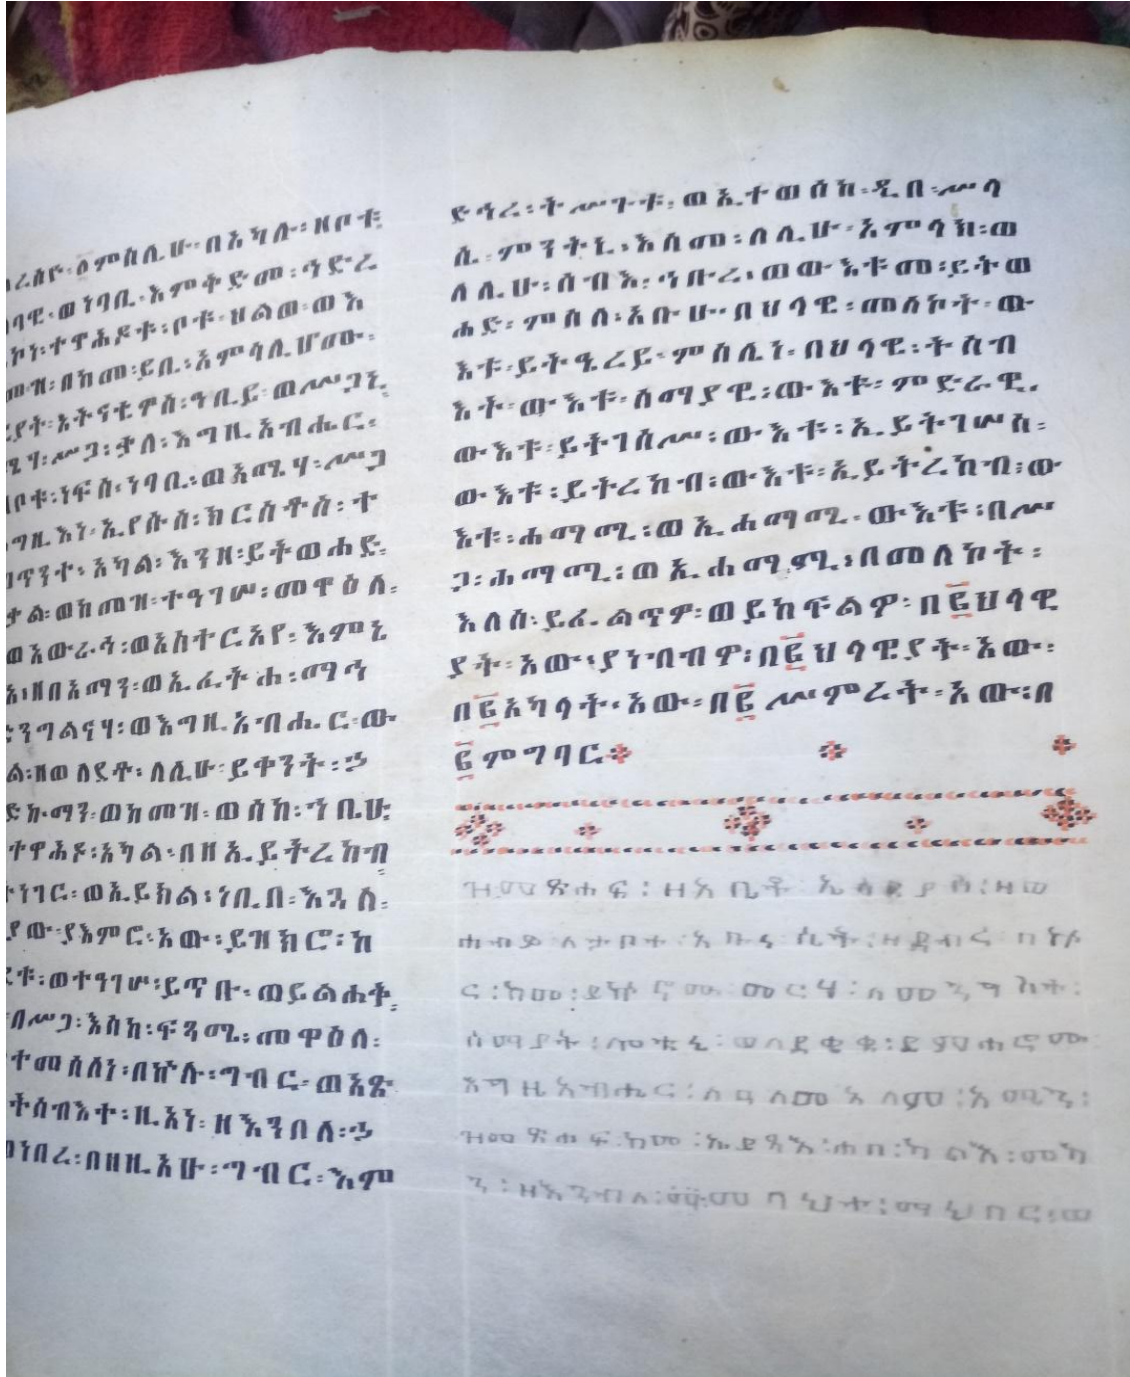 ረስዮ፡ ለምስሊሁ፡ በአካሉ፡ ዘቦቱ፡
ወነባቢ፡ እምቅድመ፡ ኀድረ
ተዋሕዶቱ፡ ቦቱ፡ ህልወ፡ ወእ
በከመ፡ ይቤ፡ አምሳሊሆሙ፡
አትናቴዎስ፡ ዓቢይ፡ ወሥጋኒ፡
ሥጋ፡ ቃለ፡ እግዚአብሔር፡
ነፍስ፡ ነባቢ፡ ወአሜሃ፡ ሥጋ
እግዚእነ፡ ኢየሱስ፡ ክርስቶስ፡ ተ
አካል፡ እንዘ፡ ይትወሐድ፡
ወከመዝ፡ ተዓገሠ፡ መዋዕለ፡
ወአውራኅ፡ ወአስተርአየ፡ እምኒ
ዘበአማን፡ ወኢፈትሐ፡ ማኅ
ድንግልናሃ፡ ወእግዚአብሔር፡ ው
ዘወለደቶ፡ ለሊሁ፡ ይቀንት፡ ኃ
ወከመዝ፡ ወሰከ፡ ኀቤሁ፡
ተዋሕዶ፡ አካል፡ በዘኢይትረከብ
ነገር፡ ወኢይክል፡ ነቢበ፡ እጓለ፡
ያአምሮ፡ አው፡ ይዝክሮ፡ ከ
ወተዓገሠ፡ ይጥቡ፡ ወይልሐቅ፡
በሥጋ፡ እስከ፡ ፍጻሜ፡ መዋዕለ፡
ተመሰለነ፡ በኵሉ፡ ግብር፡ ወአጽ
ትሰብእተ፡ ዚአነ፡ ዘእንበለ፡ ኃ
ነበረ፡ በዘዚአሁ፡ ግብር፡ እም
ድኅረ፡ ትሥጉቱ፡ ወኢተወሰከ፡ ዲበ፡ ሥላ
ሴ፡ ምንትኒ፡ እስመ፡ ለሊሁ፡ አምላክ፡ ወ
ለሊሁ፡ ሰብእ፡ ኀቡረ፡ ወውእቱመ፡ ይትወ
ሐድ፡ ምስለ፡ አቡሁ፡ በህላዌ፡ መለኮት፡ ው
እቱ፡ ይትዔረይ፡ ምስሌነ፡ በህላዌ፡ ትስብ
እት፡ ውእቱ፡ ሰማያዊ፡ ውእቱ፡ ምድራዊ፡
ውእቱ፡ ይትገሰሥ፡ ውእቱ፡ ኢይትገሠስ፡
ውእቱ፡ ይትረከብ፡ ውእቱ፡ ኢይትረከብ፡ ው
እቱ፡ ሐማሚ፡ ወኢሐማሚ፡ ውእቱ፡ በሥ
ጋ፡ ሐማሚ፡ ወኢሐማሚ፡ በመለኮት፡
እለሰ፡ ይፈልጥዎ፡ ወይከፍልዎ፡ በ፪ህላዌ
ያት፡ አው፡ ያነብብዎ፡ በ፪ህላዌያት፡ አው፡
በ፪አካላት፡ አው፡ በ፪ሥምረት፡ አው፡ በ
፪ምግባር
ዝመጽሐፍ፡ ዘአቤቶ፡
ከመ፡ ይኩኖሙ፡ መርሃ፡ ለመንግሥተ፡
ሰማያት፡ ይምሐሮሙ፡
እግዚአብሔር፡ ለዓለመ፡ ዓለም፡ አሜን፡
ዝመጽሐፍ፡ ከመ፡ ኢይፃእ፡ ሐበ፡ ካልእ፡ መካ
ን፡ ዘእንበለ፡